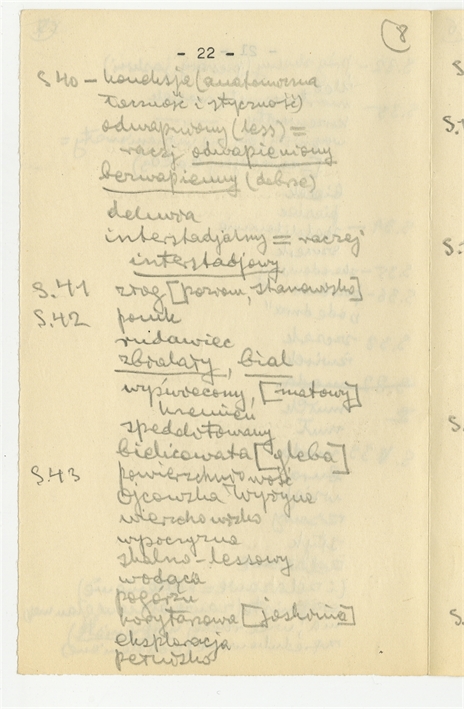 8
- 22 -
S.40 - koneksja (anatomiczna
łączność i styczność)
odwapniony (less) =
raczej odwapieniony
bezwapienny (dobrze)
deluvia
interstadjalny = raczej
interstadjowy
S.41 złog [poziom, stanowisko]
S.42
rudawiec
zbielały, biał
[matowy]
krzemień
bielicowata [gleba]
S.43 powierzchniowość
Ojcowska Wyżyna
wierzchowisko
wypoczyzna
skalno-lessowy
wodąca
pogórze
korytarzowa [jaskinia]
eksploracja